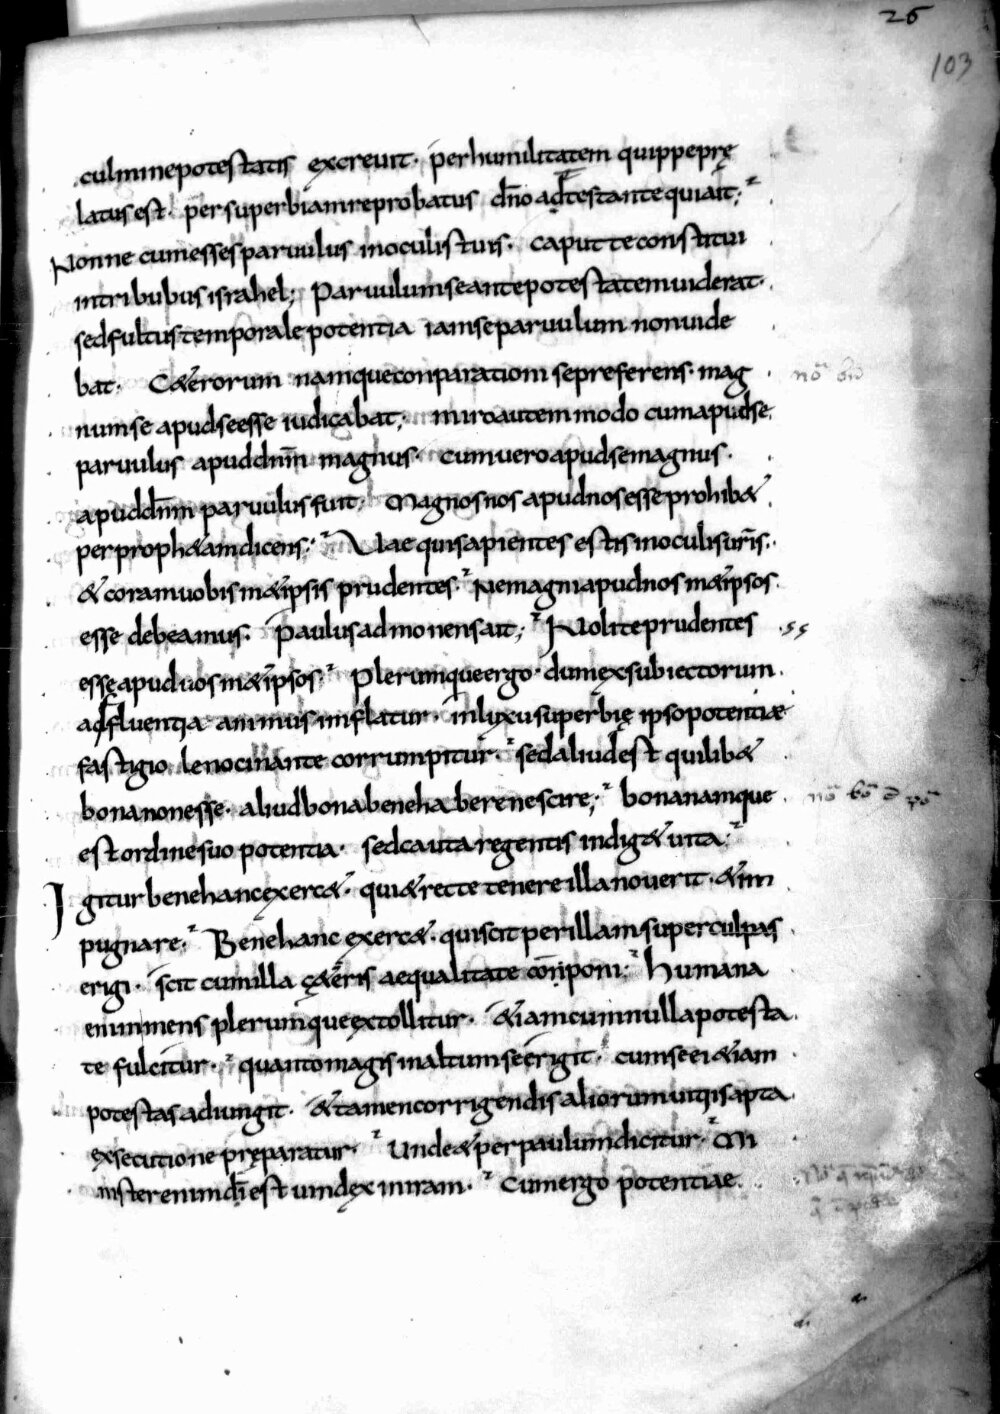 26
103
culmine potestatis excreuit· per humilitatem quippe prę
latus est· per superbiam reprobatus dn̄o adtestante qui ait;
Nonne cum esses paruulus in oculis tuis· caput te constitui
in tribubus israhel; Paruulum se ante potestatem uiderat·
sed fultus temporale potentia iam se paruulum non uide
bat· Cæterorum namque conparationi se preferens· mag
num se apud se esse iudicabat; miro autem modo cum apud se
paruulus apud dn̄m magnus· cum uero apud se magnus·
apud dn̄m paruulus fuit; Magnos nos apud nos esse prohib&
per proph&am dicens; Vae qui sapientes estis in oculis ur̄is·
& coram uobism&ipsis prudentes· Ne magni apud nosm&ipsos
esse debeamus· Paulus admonens ait; Nolite prudentes
esse apud uosm&ipsos; Plerumque ergo· dum ex subiectorum
adfluentia animus inflatur· in luxu superbię ipso potentiæ
fastigio lenocinante corrumpitur· sed aliud est quilib&
bona non esse· aliud bona bene habere nescire; bona namque
est ordine suo potentia· sed cauta regentis indig& uita;
Igitur bene hanc exerc&· qui & recte tenere illa nouerit· & im
pugnare; Bene hanc exerc&· qui scit per illam super culpas
erigi· scit cum illa c&eris aequalitate conponi; Humana
enim mens plerumque extollitur· &iam cum nulla potesta
te fulcitur· quanto magis in altum se erigit· cum se ei &iam
potestas adiungit· & tamen corrigendis aliorum uitiis apta
exsecutione pręparatur· Unde & per paulum dicitur· Mi
nister enim dī est uindex in iram· Cum ergo potentiae